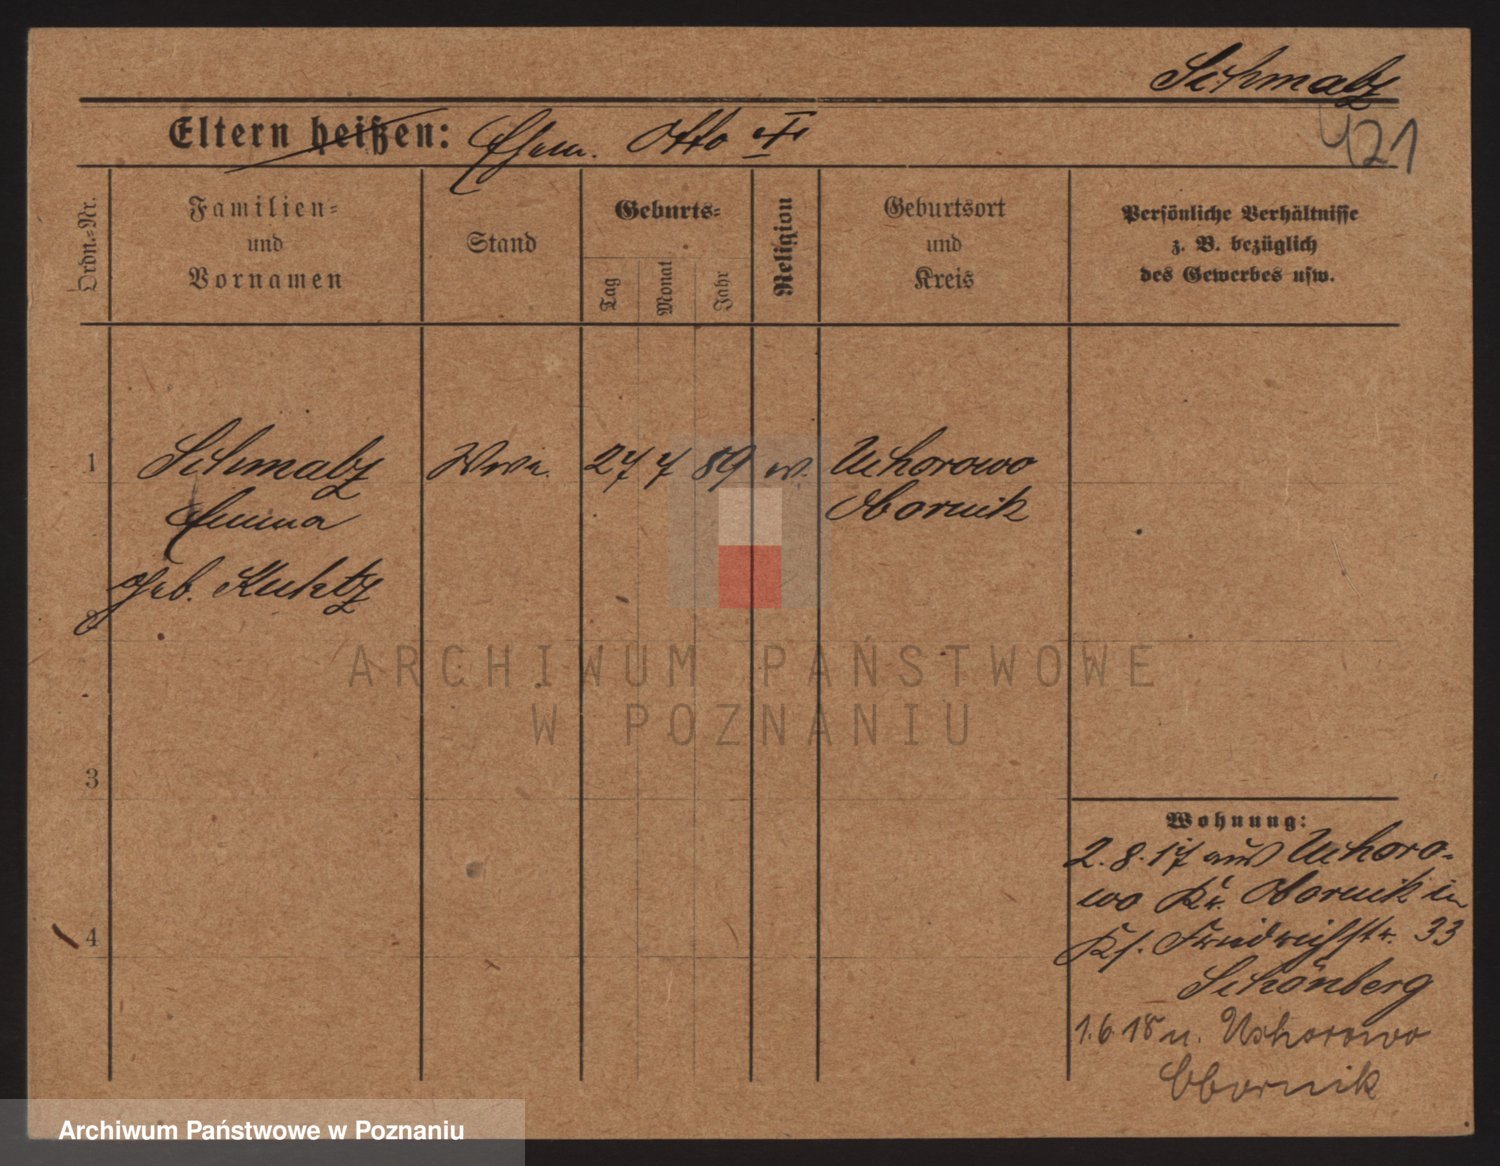 Schmalz
421
Eltern heißen: Ehem. Otto
Ordn.-Nr.
Familien-
und
Vornamen
Stand
Geburts-
Tag
Monat
Jahr
Religion
Geburtsort
und
Kreis
Persönliche Verhältnisse
z. B. bezüglich
des Gewerbes usw.
1 Schmalz Wwe. 27 7 89 Uchorowo
Emma Obornik
geb.
2
3
4
ARCHIWUM PAŃSTWOWE
W POZNANIU
Wohnung:
2. 8. 17 aus Uchoro-
wo Kr. Obornik in
Friedrichstr. 33
Schönberg
1. 6. 18 n. Uchorowo
Obornik
Archiwum Państwowe w Poznaniu